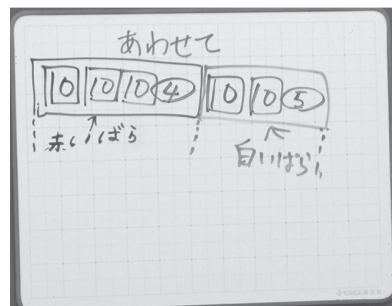 あわせて
10 10 10 4 10 10 5
赤いばら
白いばら